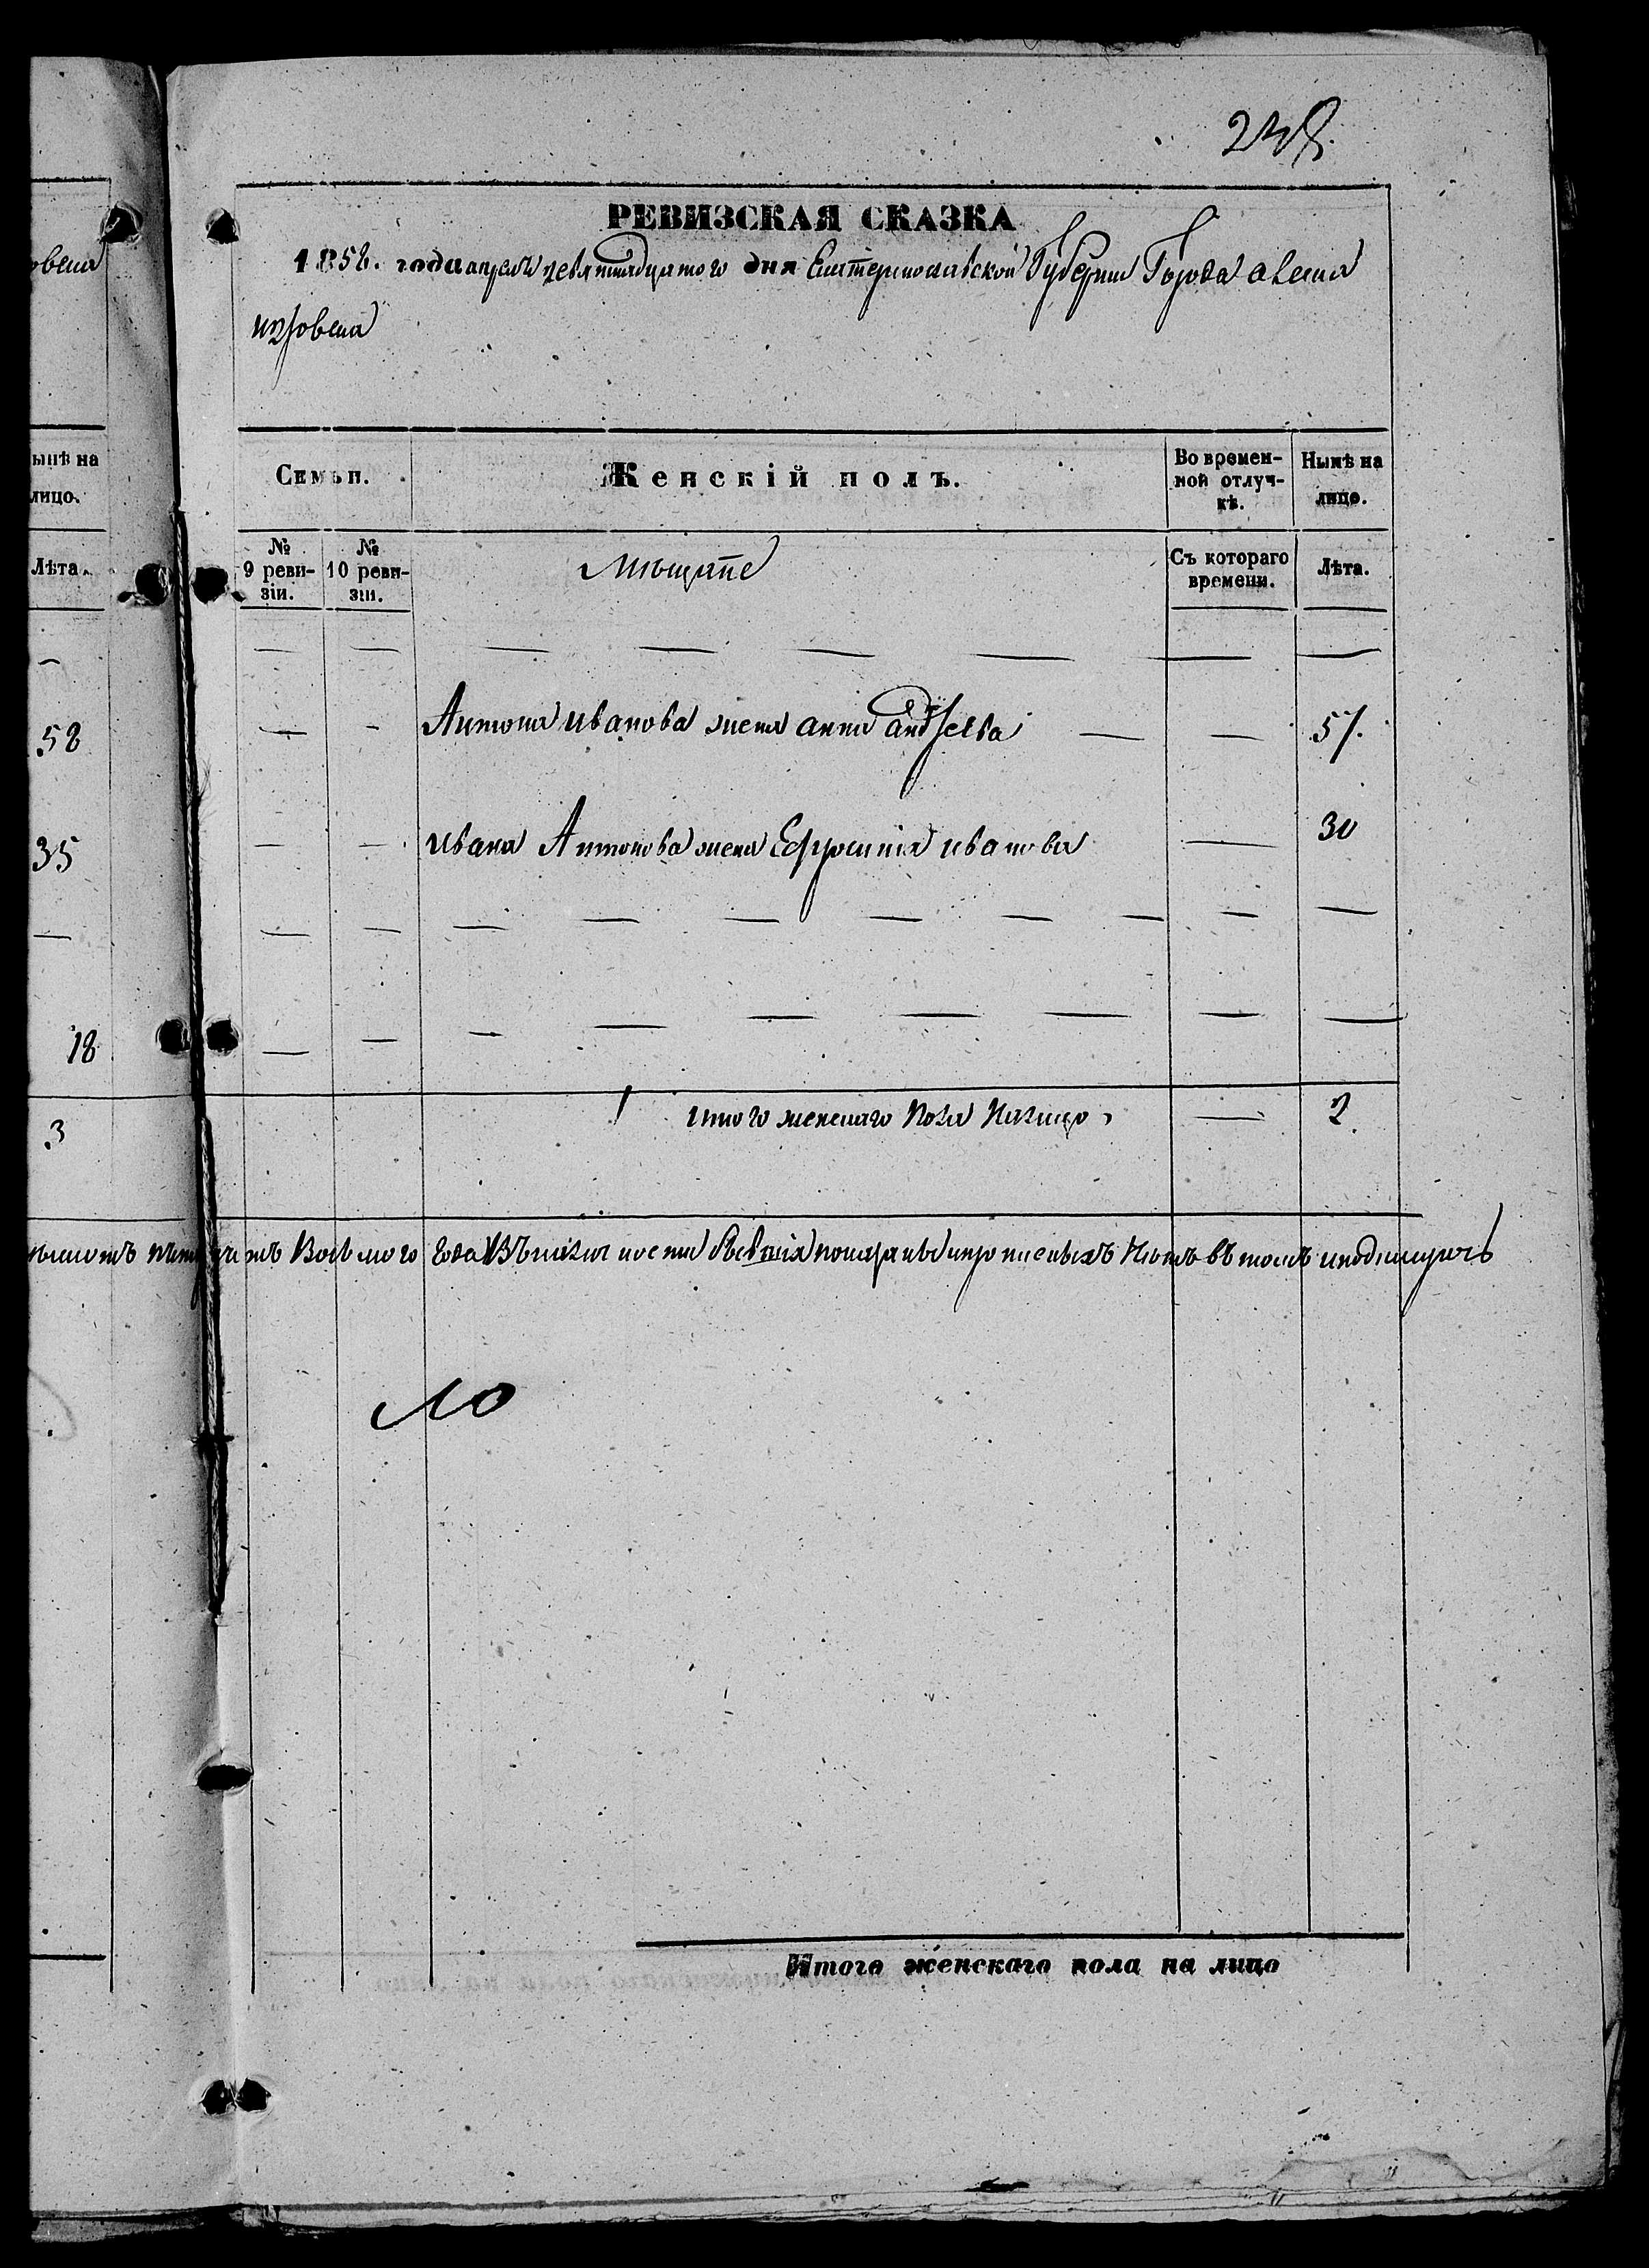 238.
РЕВИЗСКАЯ СКАЗКА
1858. года апреля девятнадцатого дня Екатеринославской Губернии Города алекса
ндровска
овска
ынѣ на
лицо.
Лѣта.
Семьи.
Женскій полъ.
Во времен-
ной отлуч-
кѣ.
Нынѣ на
лицо.
№
9 реви-
зіи.
№
10 реви-
зіи.
Мѣщане
Съ котораго
времени.
Лѣта.
58 Антона Иванова жена анна андреева 57.
35 Ивана Антонова жена Ефросинія иванова 30
18
3 итого женскаго пола налицо 2
Восьмого Года
Итого женскаго пола на лицо